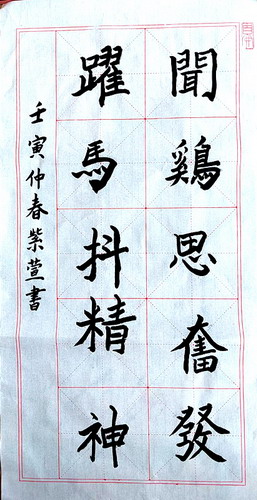 聞鷄思奮發
躍馬抖精神
壬寅仲春紫萱書